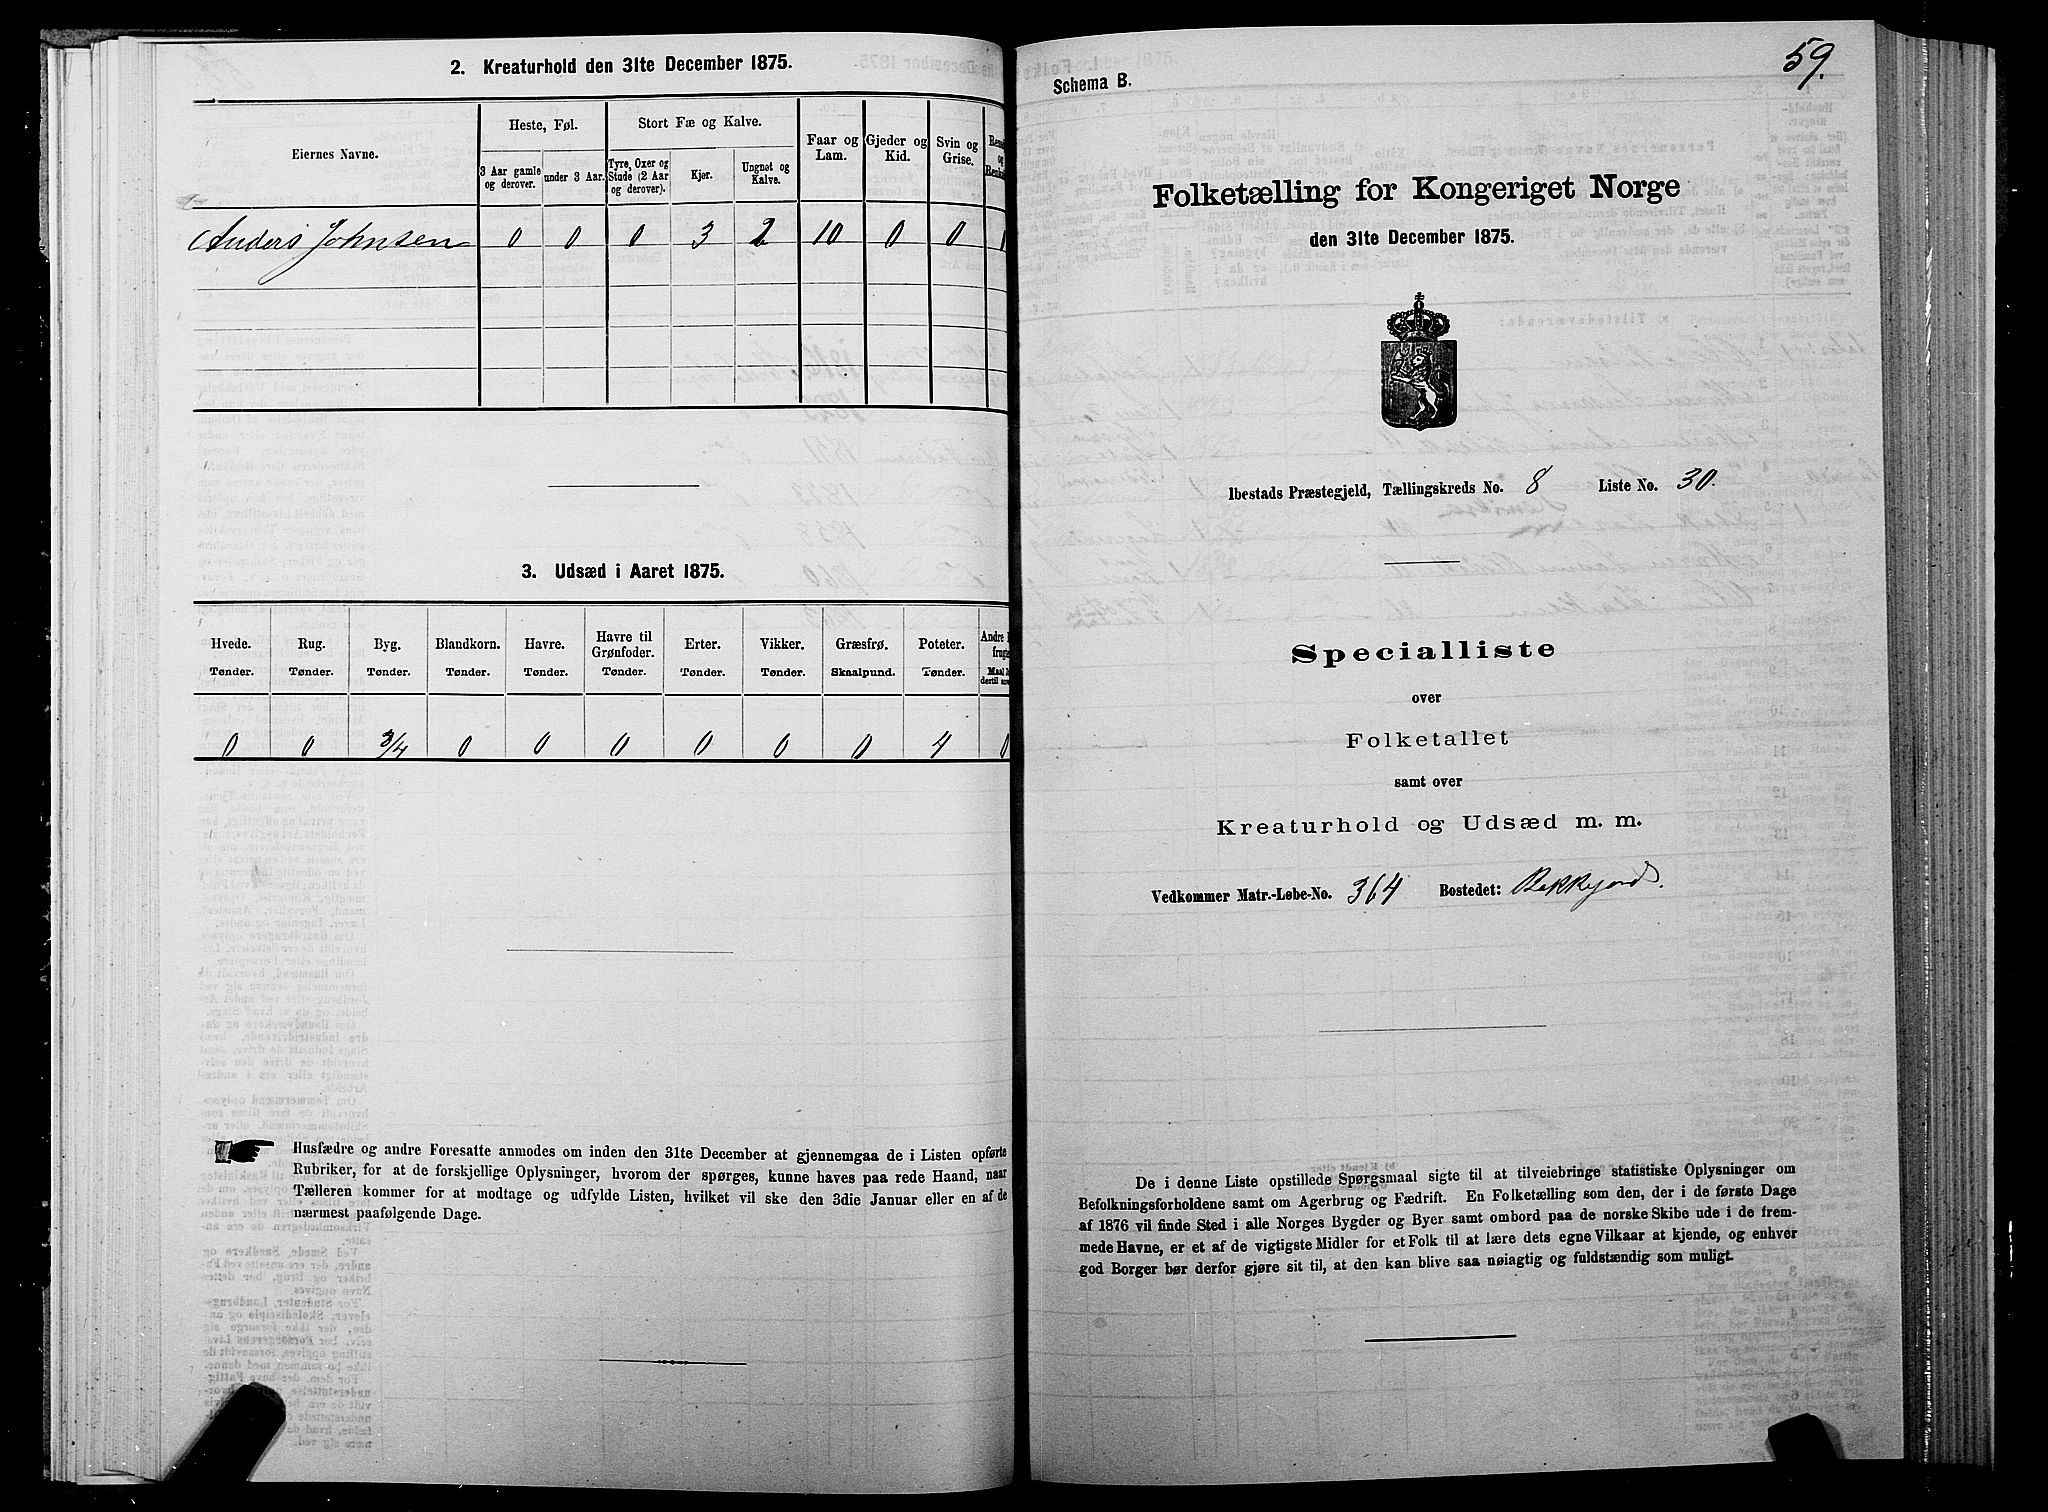 2. Kreaturhold den 31te December 1875.
Eiernes Navne.
Heste, Føl.
Stort Fæ og Kalve.
Faar og Lam.
Gjeder og Kid.
Svin og Grise.
3 Aar gamle og derover.
under 3 Aar.
Tyre, Oxer og Stude (2 Aar og derover).
Kjør.
Ungnøt og Kalve.
Anders Johnsen 0 0 0 3 2 10 0 0
3. Udsæd i Aaret 1875.
Hvede. Rug. Byg. Blandkorn. Havre. Havre til Grønfoder. Erter. Vikker. Græsfrø. Poteter. Andre
Tønder. Tønder. Tønder. Tønder. Tønder. Tønder. Tønder. Tønder. Skaalpund. Tønder.
0 0 3/4 0 0 0 0 0 0 4 0
Husfædre og andre Foresatte anmodes om inden den 31te December at gjennemgaa de i Listen opførte
Rubriker, for at de forskjellige Oplysninger, hvorom der spørges, kunne haves paa rede Haand, naar
Tælleren kommer for at modtage og udfylde Listen, hvilket vil ske den 3die Januar eller en af de
nærmest paafølgende Dage.
59.
Schema B.
Folketælling for Kongeriget Norge
den 31te December 1875.
Ibestads Præstegjeld, Tællingskreds No. 8 Liste No. 30.
Specialliste
over
Folketallet
samt over
Kreaturhold og Udsæd m. m.
Vedkommer Matr.-Løbe-No. 364 Bostedet: Bekkejord.
De i denne Liste opstillede Spørgsmaal sigte til at tilveiebringe statistiske Oplysninger om
Befolkningsforholdene samt om Agerbrug og Fædrift. En Folketælling som den, der i de første Dage
af 1876 vil finde Sted i alle Norges Bygder og Byer samt ombord paa de norske Skibe ude i de frem-
mede Havne, er et af de vigtigste Midler for et Folk til at lære dets egne Vilkaar at kjende, og enhver
god Borger bør derfor gjøre sit til, at den kan blive saa nøiagtig og fuldstændig som muligt.